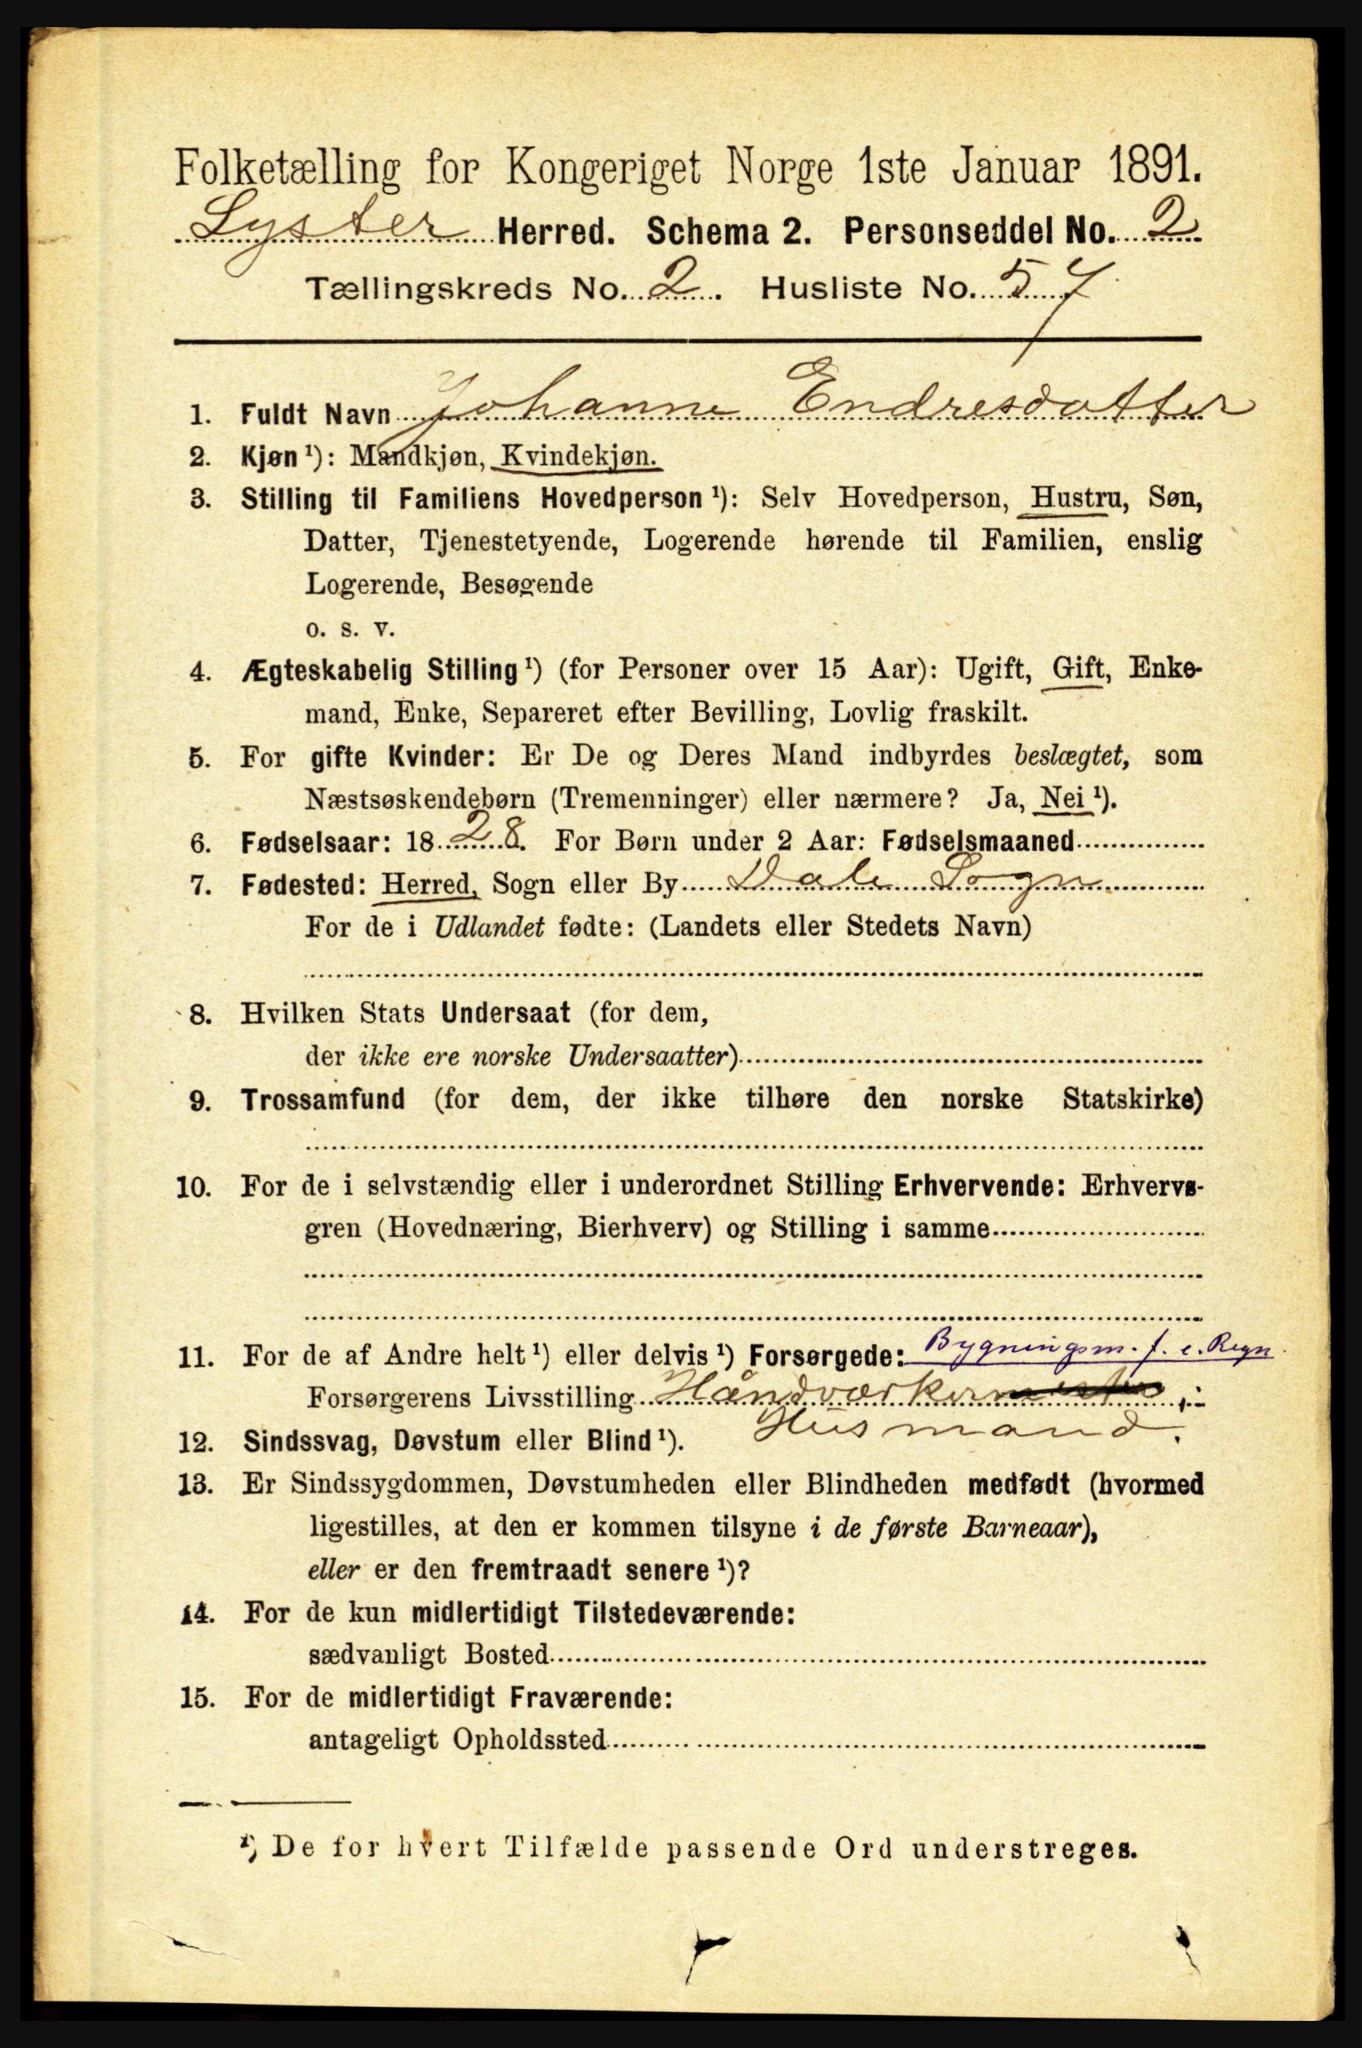 Folketælling for Kongeriget Norge 1ste Januar 1891.
Lyster Herred. Schema 2. Personseddel No. 2
Tællingskreds No. 2. Husliste No. 57
1. Fuldt Navn Johanne Endresdatter
2. Kjøn ¹): Mandkjøn, Kvindekjøn.
3. Stilling til Familiens Hovedperson ¹): Selv Hovedperson, Hustru, Søn,
Datter, Tjenestetyende, Logerende hørende til Familien, enslig
Logerende, Besøgende
o. s. v.
4. Ægteskabelig Stilling ¹) (for Personer over 15 Aar): Ugift, Gift, Enke-
mand, Enke, Separeret efter Bevilling, Lovlig fraskilt.
5. For gifte Kvinder: Er De og Deres Mand indbyrdes beslægtet, som
Næstsøskendebørn (Tremenninger) eller nærmere? Ja, Nei ¹).
6. Fødselsaar: 1828. For Børn under 2 Aar: Fødselsmaaned
7. Fødested: Herred, Sogn eller By Dale Sogn
For de i Udlandet fødte: (Landets eller Stedets Navn)
8. Hvilken Stats Undersaat (for dem,
der ikke ere norske Undersaatter)
9. Trossamfund (for dem, der ikke tilhøre den norske Statskirke)
10. For de i selvstændig eller i underordnet Stilling Erhvervende: Erhvervs-
gren (Hovednæring, Bierhverv) og Stilling i samme
Bygningsm. f. e. Regn.
11. For de af Andre helt ¹) eller delvis ¹) Forsørgede:
Forsørgerens Livsstilling Håndværkermester,
Husmand.
12. Sindssvag, Døvstum eller Blind ¹).
13. Er Sindssygdommen, Døvstumheden eller Blindheden medfødt (hvormed
ligestilles, at den er kommen tilsyne i de første Barneaar),
eller er den fremtraadt senere ¹)?
14. For de kun midlertidigt Tilstedeværende:
sædvanligt Bosted
15. For de midlertidigt Fraværende:
antageligt Opholdssted
¹) De for hvert Tilfælde passende Ord understreges.